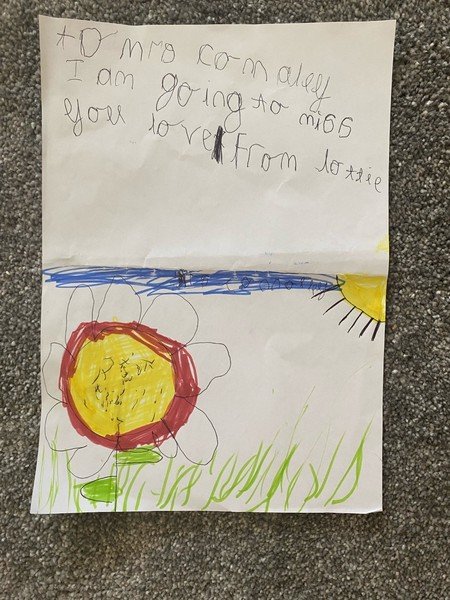 to mrs comaley
I am going to miss
you love from lottie